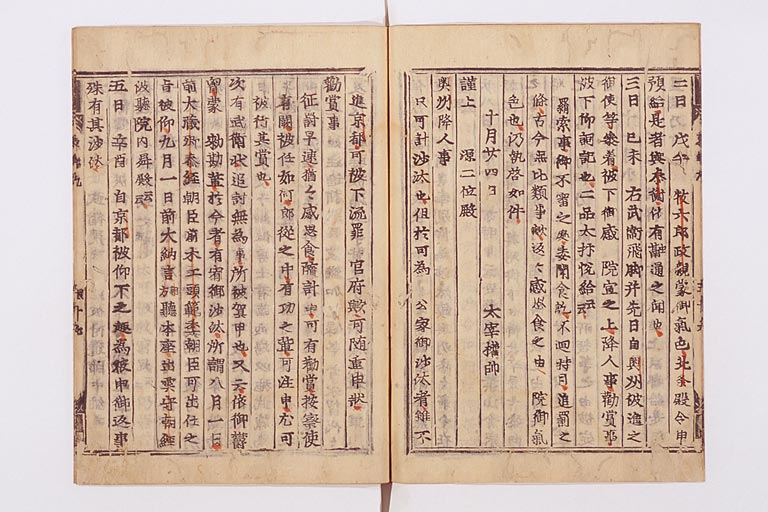 二日 戊午 牧六郎政親蒙御氣色北条殿令申
預給是者與泰衡依有融通之聞也
三日 己未 右武衛飛脚并先日自奥州被進之
御使等參着被下御感 院宣之上降人事勧賞事
被下仰詞記也二品太抃悦給云云
羂索事御不審之處委聞食訖不廻時月追罰之
條古今無比類事歟返〻感思食之由 院御氣
色也仍執啓如件
十月廿四日 太宰権帥
謹上 源二位殿
奥州降人事
只可計沙汰也但於可為 公家御沙汰者雖不
進京都可被下流罪 官府歟可随重申状
勧賞事
征討早速猶〻感思食隨計申可有勧賞按察使
有闕被任如何郎從之中有功之輩可注申尤可
被行其賞也
次有武衛状追討無為事所被賀申也又云依御欝
曽蒙 勅勘輩於今者有宥御沙汰所謂八月一日
前大藏卿泰經朝臣前木工頭範季朝臣可出仕之
旨被仰九月一日前大納言 聽本座出雲守朝經
被聽院内昇殿云云
五日 辛酉 自京都被仰下之趣為被申御返事
殊有其沙汰